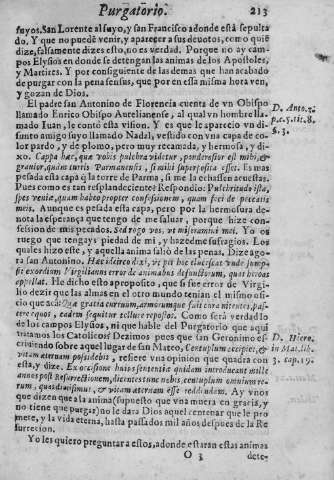 Purgatorio. 213
suyos. San Lorente al suyo, y san Francisco adonde està sepulta
do. Y que no puedē venir, y aparecer a sus deuotos, como ò quié
dize, falsamente dizes esto, no es verdad. Porque no ay cam-
pos Elysios en donde se detengan las animas de los Apostoles,
y Martires. Y por consiguiente de las demas que han acabado
de purgar con la pena sensus, que por en essa misma hora ven,
y gozan de Dios.
El padre san Antonino de Florencia cuenta de vn Obispo
llamado Enrico Obispo Aurelianense, al qual vn hombre lla-
mado Iuan, le contò esta visiõ. Y es que le aparecio vn di-
funto amigo suyo llamado Nadal, vestido con vna capa de co-
lor pardo, y de plomo, pero muy recamada, y hermosa, y di-
xo. Cappa hæc, quæ vobis pulchra videtur, ponderosior est mihi, &
grauior, quàm turris Parmanensis, si mihi superposita esset. Es mas
pesada esta capa q̄ la torre de Parma, si me la echassen acuestas.
Pues como es tan resplandeciente? Respondio: Pulchritudo ista,
spes veniæ, quam habeo propter confessionem, quam feci de peccatis
meis. Aunque es pesada esta capa, pero por la hermosura de-
nota la esperança que tengo de me saluar, porque hize con-
fession de mis pecados. Sed rogo vos, vt misereamini mei. Yo os
ruego que tengays piedad de mi, y hazedme sufragios. Los
quales hizo este, y aquella anima saliò de las penas. Dize ago-
ra san Antonino. Hæc ideirco dixi, vt per hoc elucescat vnde sump-
sit exordium Virgilianus error de animabus defunctorum, quas heroas
appellat. He dicho esto aproposito, que si fue error de Virgi-
lio dezir que las almas en el otro mundo tenian el mismo ofi-
cio que acà: Quæ gratia curruum, armorumque fuit cura nitentes, pas-
cere equos, eadem sequitur tellure repostos. Como serà verdad lo
de los campos Elysios, ni que hable del Purgatorio que aqui
tratamos los Catolicos? Dezimos pues que san Geronimo es-
criuiendo sobre aquel lugar de san Mateo, Centuplum accipiet, &
vitam æternam possidebit, refiere vna opinion que quadra con
esta, y dize. Ex occasione huius sententiæ quidam introducunt mille
annos post Resurrectionem, dicentes tunc nobis, centuplum omnium re-
rum, quas dimisimus, & vitam æternam esse reddendam. Ay vnos
que dizen que a la anima (supuesto que vna muera en gracia, y
no tiene que purgar) no le darà Dios aquel centenar que le pro
mete, y la vida eterna, hasta passados mil años despues de la Re
surreccion.
Yo les quiero preguntar a estos, adonde estaràn estas animas
O 3 dete-
D. Anto. 2.
p.c.5.tit.8.
§.3.
D. Hiero.
in Mat. lib.
3. cap. 19.